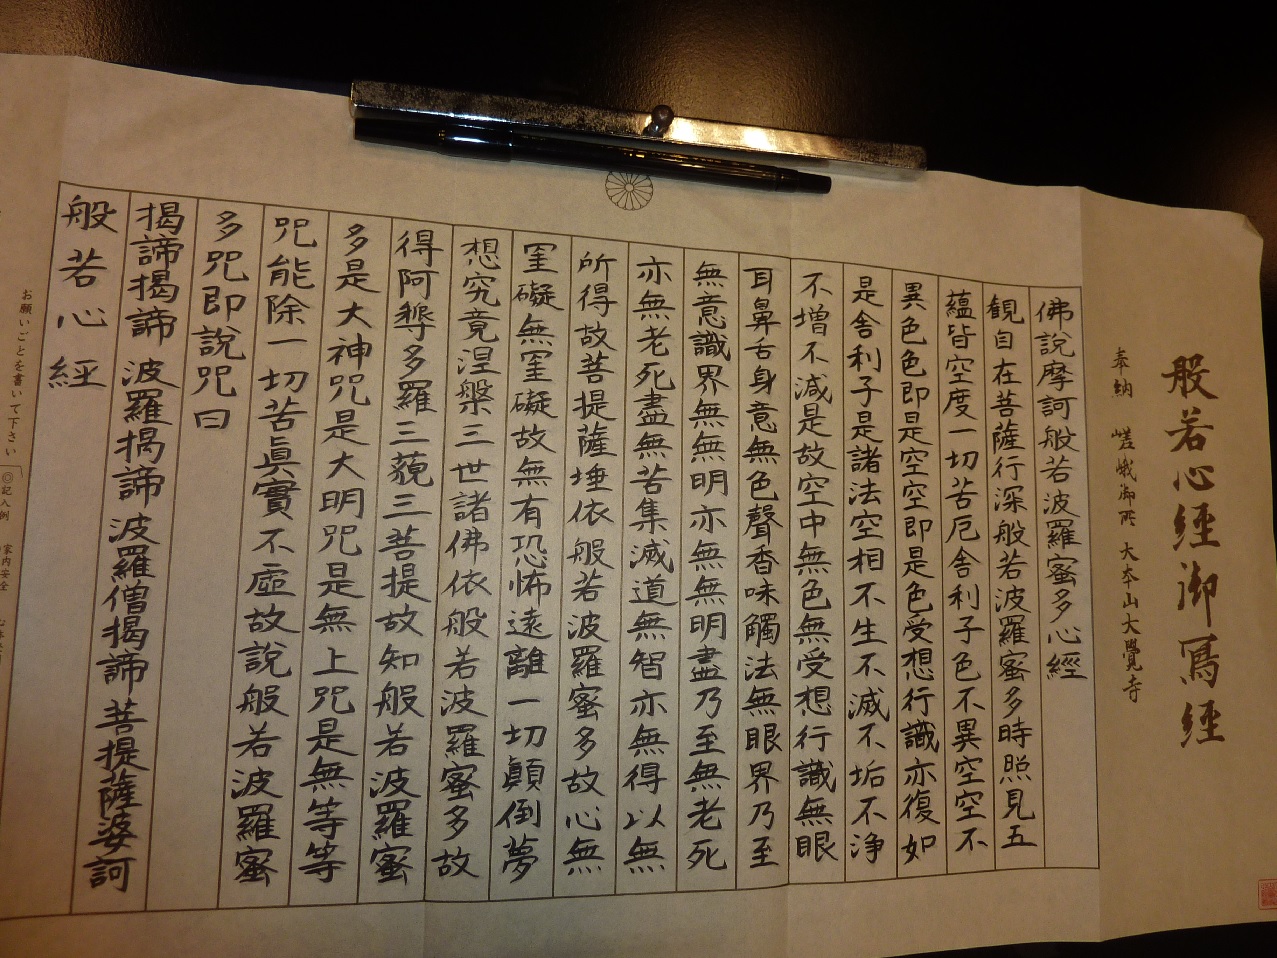 般若心経御寫経
奉納 嵯峨御所 大本山大覺寺
佛説摩訶般若波羅蜜多心經
観自在菩薩行深般若波羅蜜多時照見五
蘊皆空度一切苦厄舎利子色不異空空不
異色色即是空空即是色受想行識亦復如
是舎利子是諸法空相不生不滅不垢不浄
不増不減是故空中無色無受想行識無眼
耳鼻舌身意無色聲香味觸法無眼界乃至
無意識界無無明亦無無明盡乃至無老死
亦無老死盡無苦集滅道無智亦無得以無
所得故菩提薩埵依般若波羅蜜多故心無
罣礙無罣礙故無有恐怖遠離一切顛倒夢
想究竟涅槃三世諸佛依般若波羅蜜多故
得阿耨多羅三藐三菩提故知般若波羅蜜
多是大神咒是大明咒是無上咒是無等等
咒能除一切苦眞實不虛故説般若波羅蜜
多咒即説咒曰
揭諦揭諦 波羅揭諦 波羅僧揭諦 菩提薩婆訶
般若心経
お願いごとを書いて下さい
◎記入例 家内安全